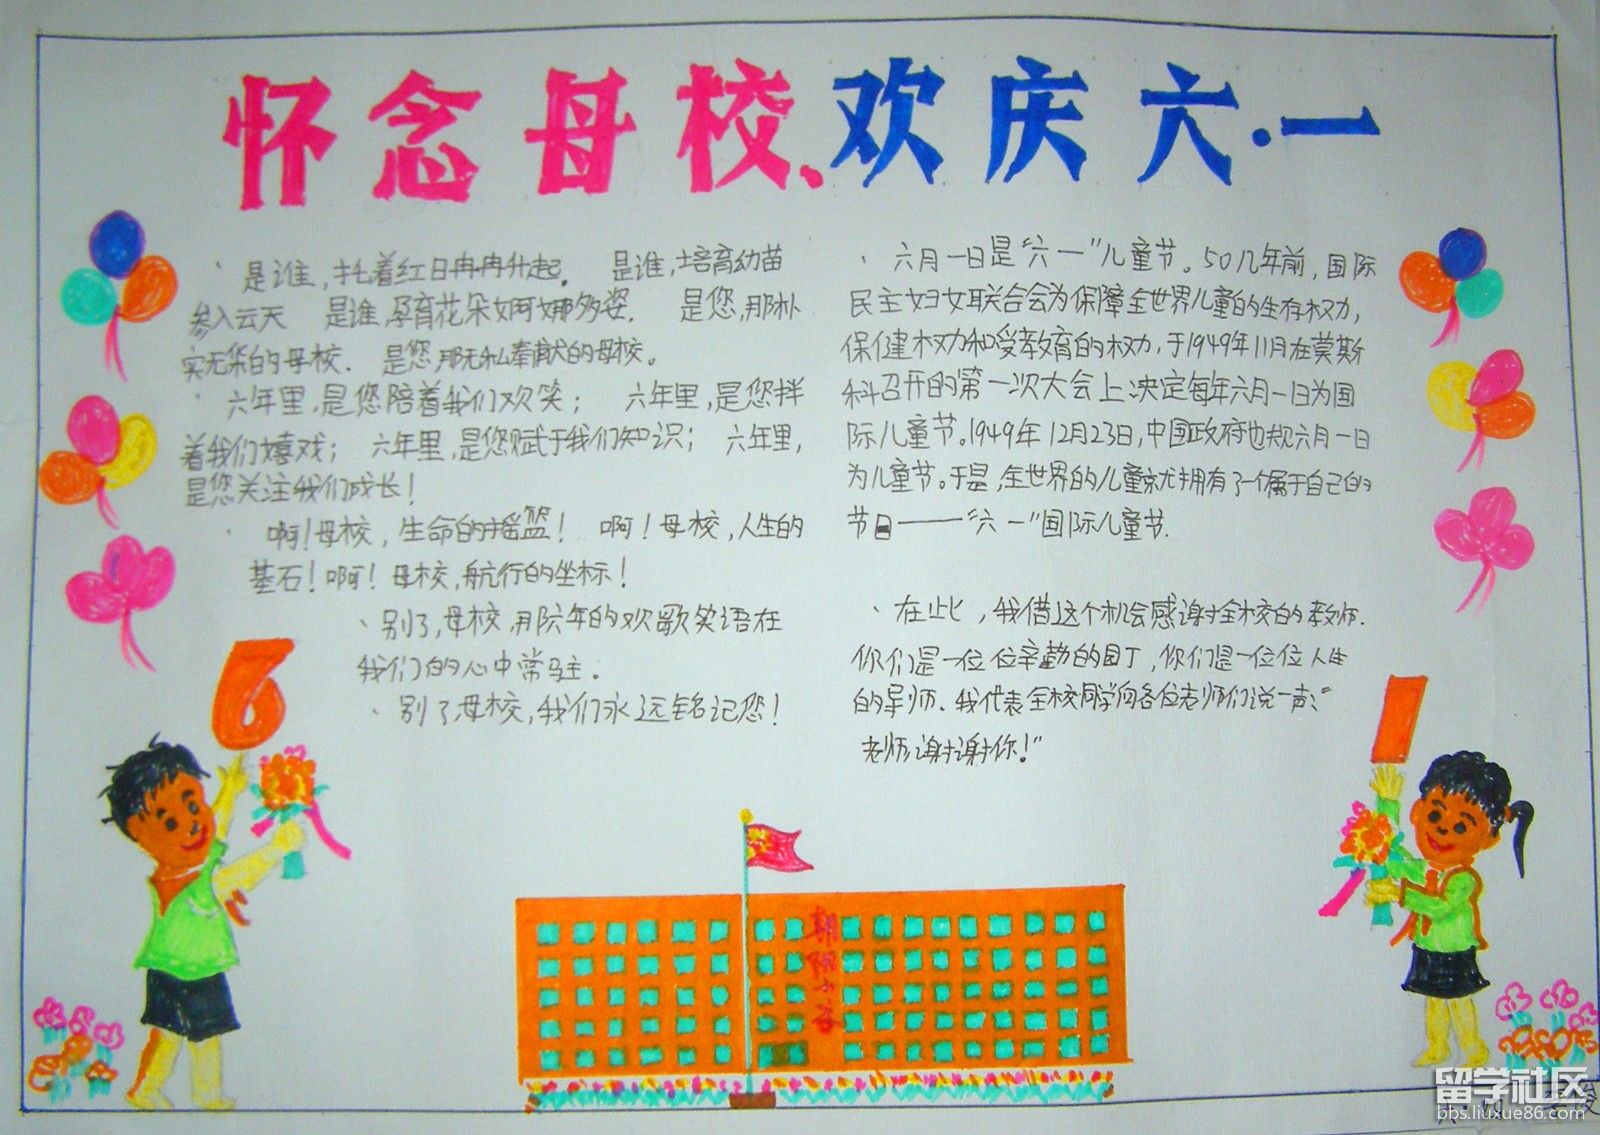 怀念母校、欢庆六·一
、是谁，托着红日冉冉升起。 是谁，培育幼苗
参入云天 是谁，孕育花朵婀娜多姿. 是您,那朴
实无华的母校. 是您那无私奉献的母校。
、六年里,是您陪着我们欢笑； 六年里,是您拌
着我们嬉戏； 六年里,是您赋于我们知识； 六年里,
是您关注我们成长！
、啊！母校，生命的摇篮！ 啊！母校,人生的
基石！啊！母校,航行的坐标！
、别了,母校,那六年的欢歌笑语在
我们的心中常驻.
、别了母校,我们永远铭记您！
、六月一日是“六一”儿童节。50几年前,国际
民主妇女联合会为保障全世界儿童的生存权力,
保健权力和受教育的权力,于1949年11月在莫斯
科召开的第一次大会上决定每年六月一日为国
际儿童节。1949年12月23日,中国政府也规六月一日
为儿童节。于是,全世界的儿童就拥有了一个属于自己的
节日——“六一”国际儿童节.
、在此，我借这个机会感谢全校的教师.
你们是一位位辛勤的园丁,你们是一位位人生
的导师.我代表全校同学向各位老师们说一声:“
老师谢谢你！”
6
1
朝阳小学
留学社区
bbs.liuxue86.com